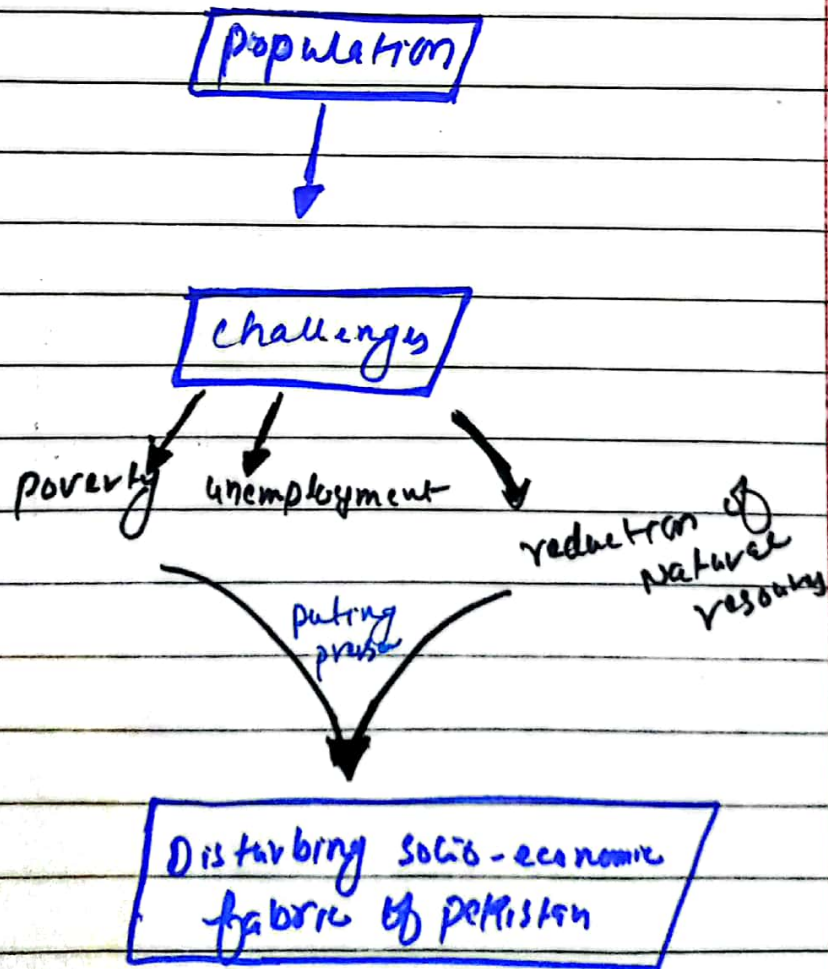 population
challenges
poverty unemployment
reduction of
Natural
resources
puting
Disturbing socio-economic
fabric of pakistan